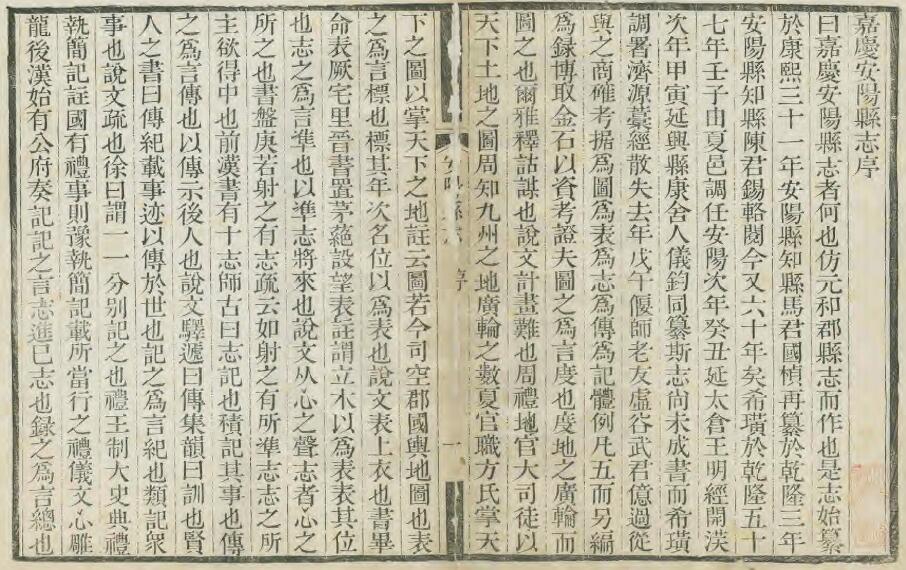 嘉慶安陽縣志序
曰嘉慶安陽縣志者何也仿元和郡縣志而作也是志始纂
於康熙三十一年安陽縣知縣馬君國楨再纂於乾隆三年
安陽縣知縣陳君錫輅閱今又六十年矣希璜於乾隆五十
七年壬子由夏邑調任安陽次年癸丑延太倉王明經開渶
次年甲寅延興縣康舍人儀鈞同纂斯志尚未成書而希璜
調署濟源藁經散失去年戊午偃師老友虛谷武君億過從
與之商確考据爲圖爲表爲志爲傳爲記體例凡五而另編
爲錄博取金石以資考證夫圖之爲言度也度地之廣輪而
圖之也爾雅釋詁謀也說文計畫難也周禮地官大司徒以
天下土地之圖周知九州之地廣輪之數夏官職方氏掌天
安陽縣志 序 一
下之圖以掌天下之地註云圖若今司空郡國輿地圖也表
之爲言標也標其年次名位以爲表也說文表上衣也書畢
命表厥宅里晉書置茅蕝設望表註謂立木以爲表表其位
也志之爲言準也以準志將來也說文从心之聲志者心之
所之也書盤庚若射之有志疏云如射之有所準志志之所
主欲得中也前漢書有十志師古曰志記也積記其事也傳
之爲言傳也以傳示後人也說文驛遞曰傳集韻曰訓也賢
人之書曰傳紀載事迹以傳於世也記之爲言紀也類記衆
事也說文疏也徐曰謂一一分別記之也禮王制大史典禮
執簡記註國有禮事則豫執簡記載所當行之禮儀文心雕
龍後漢始有公府奏記記之言志進已志也錄之爲言總也